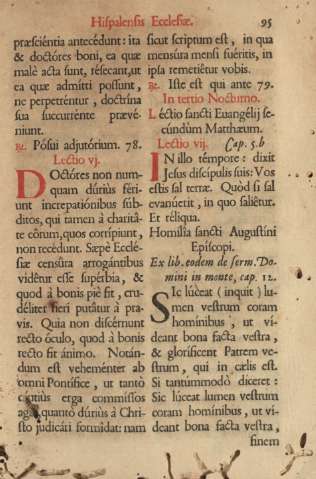 Hispalensis Ecclesiæ. 95
præsciéntia antecédunt: ita
& doctóres boni, ea quæ
malè acta sunt, résecant, ut
ea quæ admitti possunt,
ne perpetréntur, doctrína
sua succurrénte prævé-
niunt.
℟. Pósui adjutórium. 78.
Lectio vj.
DOctóres non num-
quam dúriùs féri-
unt increpatiónibus súb-
ditos, qui tamen à charitá-
te córum, quos corrípiunt,
non recédunt. Sæpè Ecclé-
siæ censúra arrogántibus
vidétur esse supérbia, &
quod à bonis piè fit, cru-
déliter fieri putátur à pra-
vis. Quia non discérnunt
recto óculo, quod à bonis
recto fit ánimo. Notán-
dum est veheménter ab
omni Pontífice, ut tantò
cautiùs erga commíssos
agat, quantò dúriùs à Chri-
sto judicári formídat: nam
sicut scriptum est, in qua
mensúra mensi fuéritis, in
ipsa remetiétur vobis.
℟. Iste est qui ante 79.
In tertio Nocturno.
Léctio sancti Euangélij se-
cúndùm Matthæum.
Lectio vij. Cap. 5. b
IN illo témpore: dixit
Jesus discípulis suis: Vos
estis sal terræ. Quòd si sal
evanúerit, in quo saliétur.
Et réliqua.
Homilia sancti Augustini
Epíscopi.
Ex lib. eodem de serm. Do-
mini in monte, cap. 12.
SIc lúceat (inquit) lu-
men vestrum coram
homínibus, ut ví-
deant bona facta vestra,
& gloríficent Patrem ve-
strum, qui in cælis est.
Si tantúmmodò díceret:
Sic lúceat lumen vestrum
coram homínibus, ut ví-
deant bona facta vestra,
finem